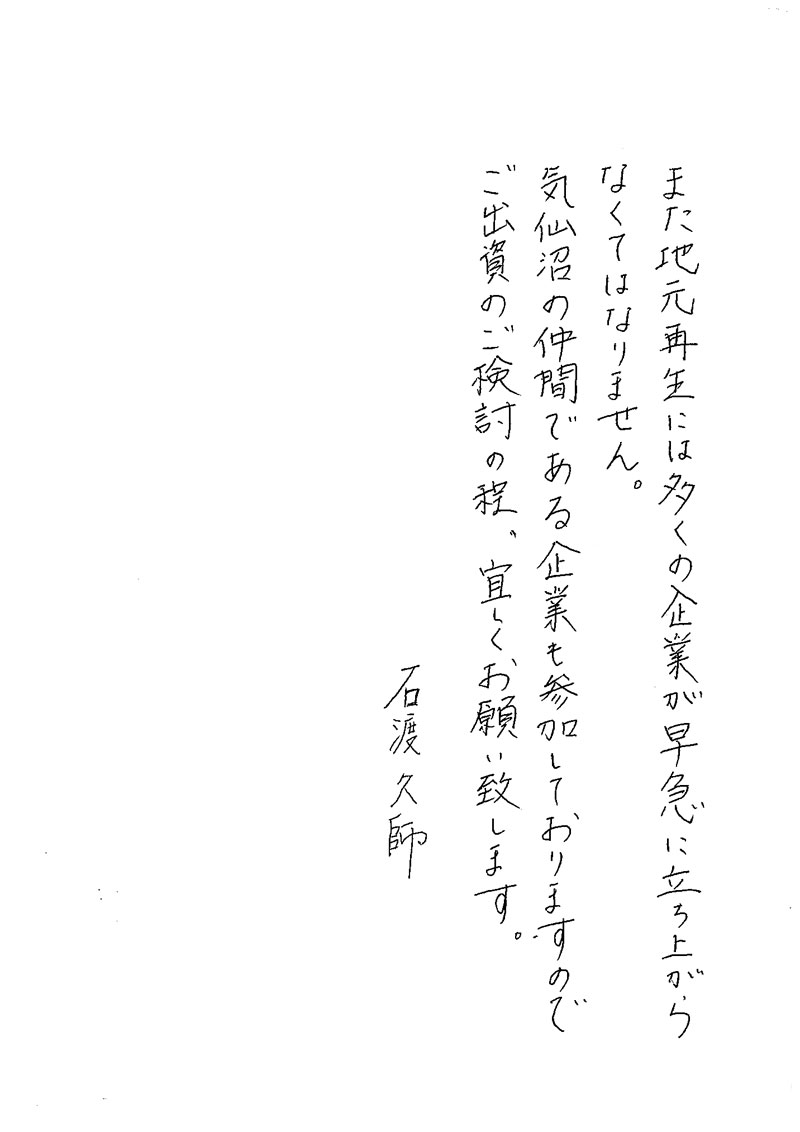 また地元再生には多くの企業が早急に立ち上がら
なくてはなりません。
気仙沼の仲間である企業も参加しておりますので
ご出資のご検討の程、宜しくお願い致します。
石渡久師